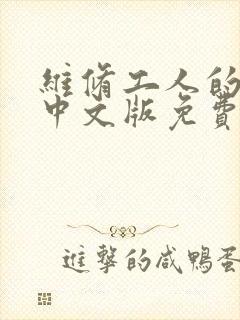 維修工人的
中文版免費
進擊的咸鴨蛋